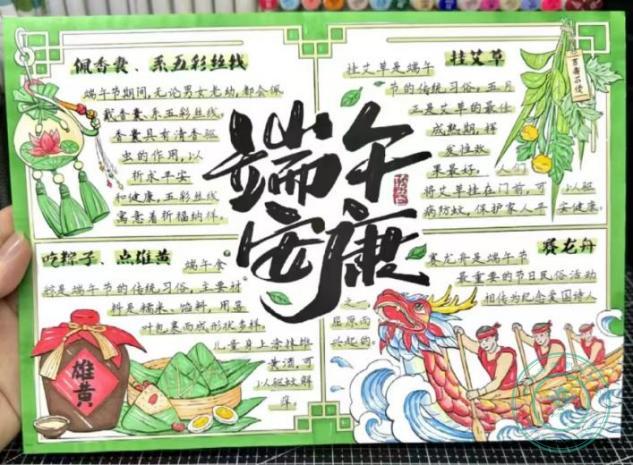 佩香囊、系五彩丝线
端午节期间,无论男女老幼,都会佩
戴香囊、系五彩丝线,
香囊具有清香驱
虫的作用,以
祈求平安
和健康,五彩丝线
寓意着祈福纳祥。
挂艾草
挂艾草是端午
节的传统习俗,五月
正是艾草的最佳
成熟期,挥
发性效
果最好。人们
将艾草挂在门前,可以驱
病防蚊,保护家人平安健康。
端午
安康
吃粽子、点雄黄
端午食
粽是端午节的传统习俗,主要材
料是糯米、馅料,用箬
叶包裹而成形状多样。
儿童身上涂抹雄
黄酒,可
以驱蚊解
痒
雄黄
赛龙舟
赛龙舟是端午节
最重要的节日民俗活动
相传为纪念爱国诗人
屈原而
兴起的